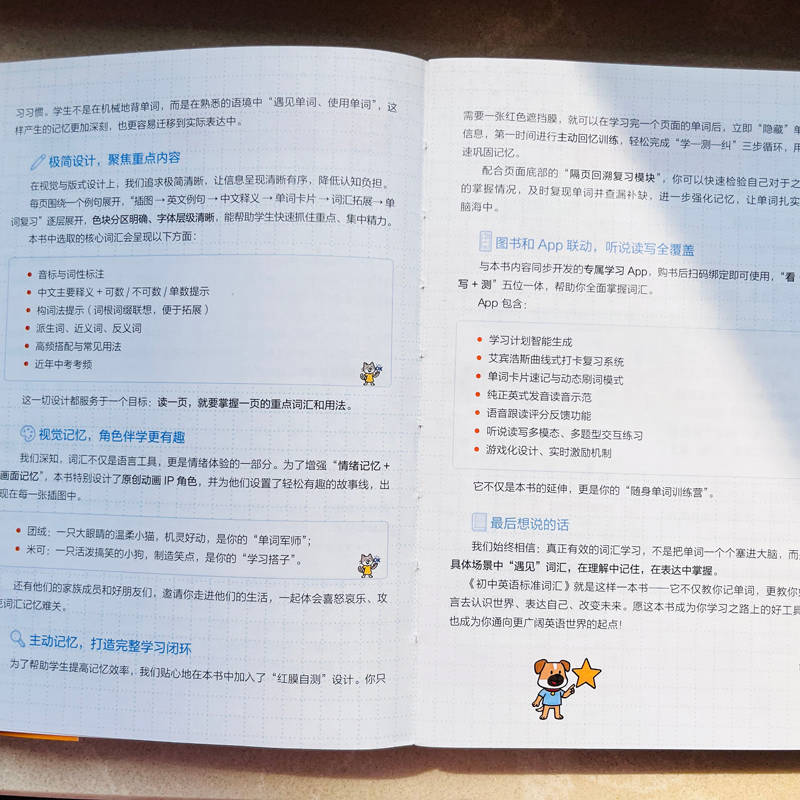 习习惯。学生不是在机械地背单词，而是在熟悉的语境中“遇见单词、使用单词”，这
样产生的记忆更加深刻，也更容易迁移到实际表达中。
极简设计，聚焦重点内容
在视觉与版式设计上，我们追求极简清晰，让信息呈现清晰有序，降低认知负担。
每页围绕一个例句展开，“插图→英文例句→中文释义→单词卡片→词汇拓展→单
词复习”逐层展开，色块分区明确、字体层级清晰，能帮助学生快速抓住重点、集中精力。
本书中选取的核心词汇会呈现以下方面：
音标与词性标注
中文主要释义 + 可数 / 不可数 / 单数提示
构词法提示（词根词缀联想，便于拓展）
派生词、近义词、反义词
高频搭配与常见用法
近年中考考频
这一切设计都服务于一个目标：读一页，就要掌握一页的重点词汇和用法。
视觉记忆，角色伴学更有趣
我们深知，词汇不仅是语言工具，更是情绪体验的一部分。为了增强“情绪记忆 +
画面记忆”，本书特别设计了原创动画 IP 角色，并为他们设置了轻松有趣的故事线，出
现在每一张插图中。
团绒：一只大眼睛的温柔小猫，机灵好动，是你的“单词军师”；
米可：一只活泼搞笑的小狗，制造笑点，是你的“学习搭子”。
还有他们的家族成员和好朋友们，邀请你走进他们的生活，一起体会喜怒哀乐、攻
克词汇记忆难关。
主动记忆，打造完整学习闭环
为了帮助学生提高记忆效率，我们贴心地在本书中加入了“红膜自测”设计。你只
需要一张红色遮挡膜，就可以在学习完一个页面的单词后，立即“隐藏”单
信息，第一时间进行主动回忆训练，轻松完成“学—测—纠”三步循环，用
速巩固记忆。
配合页面底部的“隔页回溯复习模块”，你可以快速检验自己对于之
的掌握情况，及时复现单词并查漏补缺，进一步强化记忆，让单词扎实
脑海中。
图书和 App 联动，听说读写全覆盖
与本书内容同步开发的专属学习 App，购书后扫码绑定即可使用，“看
写 + 测”五位一体，帮助你全面掌握词汇。
App 包含：
学习计划智能生成
艾宾浩斯曲线式打卡复习系统
单词卡片速记与动态刷词模式
纯正英式发音读音示范
语音跟读评分反馈功能
听说读写多模态、多题型交互练习
游戏化设计、实时激励机制
它不仅是本书的延伸，更是你的“随身单词训练营”。
最后想说的话
我们始终相信：真正有效的词汇学习，不是把单词一个个塞进大脑，而是
具体场景中“遇见”词汇，在理解中记住，在表达中掌握。
《初中英语标准词汇》就是这样一本书——它不仅教你记单词，更教你如
言去认识世界、表达自己、改变未来。愿这本书成为你学习之路上的好工具
也成为你通向更广阔英语世界的起点！